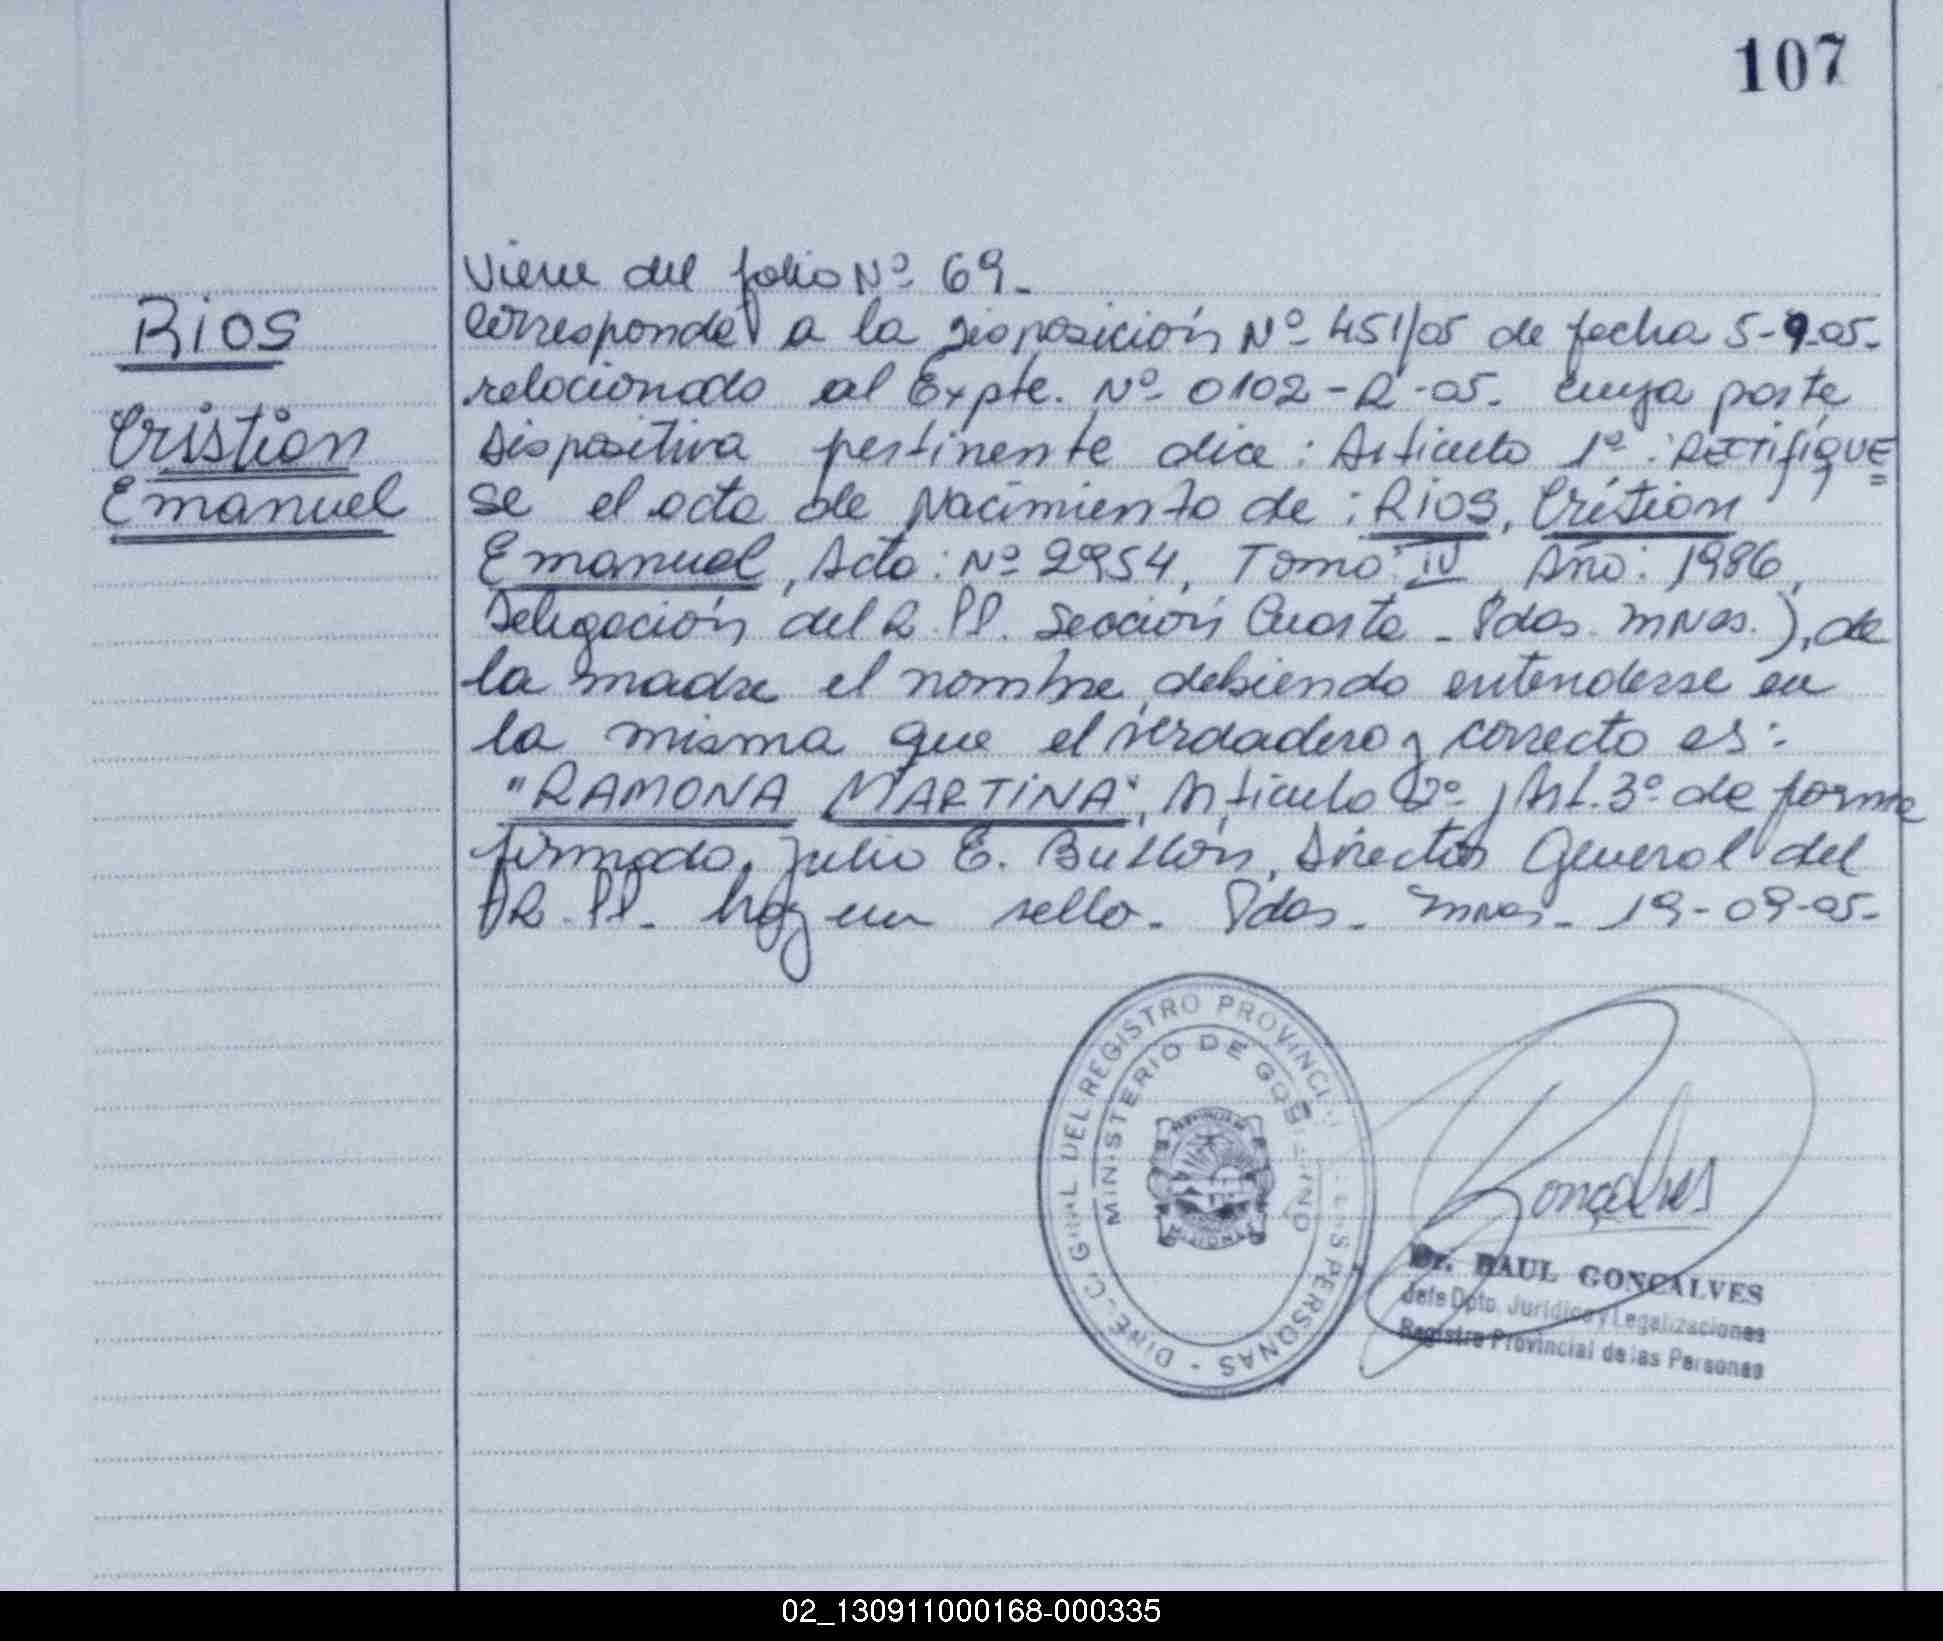 107
Viene del folio Nº 69.-
Rios
Cristian
Emanuel
Corresponde a la Disposición Nº 451/05 de fecha 5-9-05.-
relacionado al Expte. Nº 0102-R-05. cuya parte
Dispositiva pertinente dice: Articulo 1º: RECTIFIQUE=
se el acta de Nacimiento de: RIOS, Cristian
Emanuel, Acta: Nº 2954, Tomo: IV Año: 1986,
Delegación del R.PP. Sección Cuarta - Pdas. Mnes.), de
la madre el nombre, debiendo entenderse en
la misma que el verdadero y correcto es:
"RAMONA MARTINA", Articulo 2º y Art. 3º de forma
firmado, Julio E. Butlón, Director General del
R.PP. hay un sello. Pdas. Mnes. 19-09-05.-
DIRECC. GRAL DEL REGISTRO PROVINCI PERSONAS -
MINISTERIO DE GOBIERNO
PROVINCIA DE
MISIONES
Goncalves
Dr. RAUL GONCALVES
Jefe Dpto. Jurídico y Legalizaciones
Registro Provincial de las Personas
02_130911000168-000335